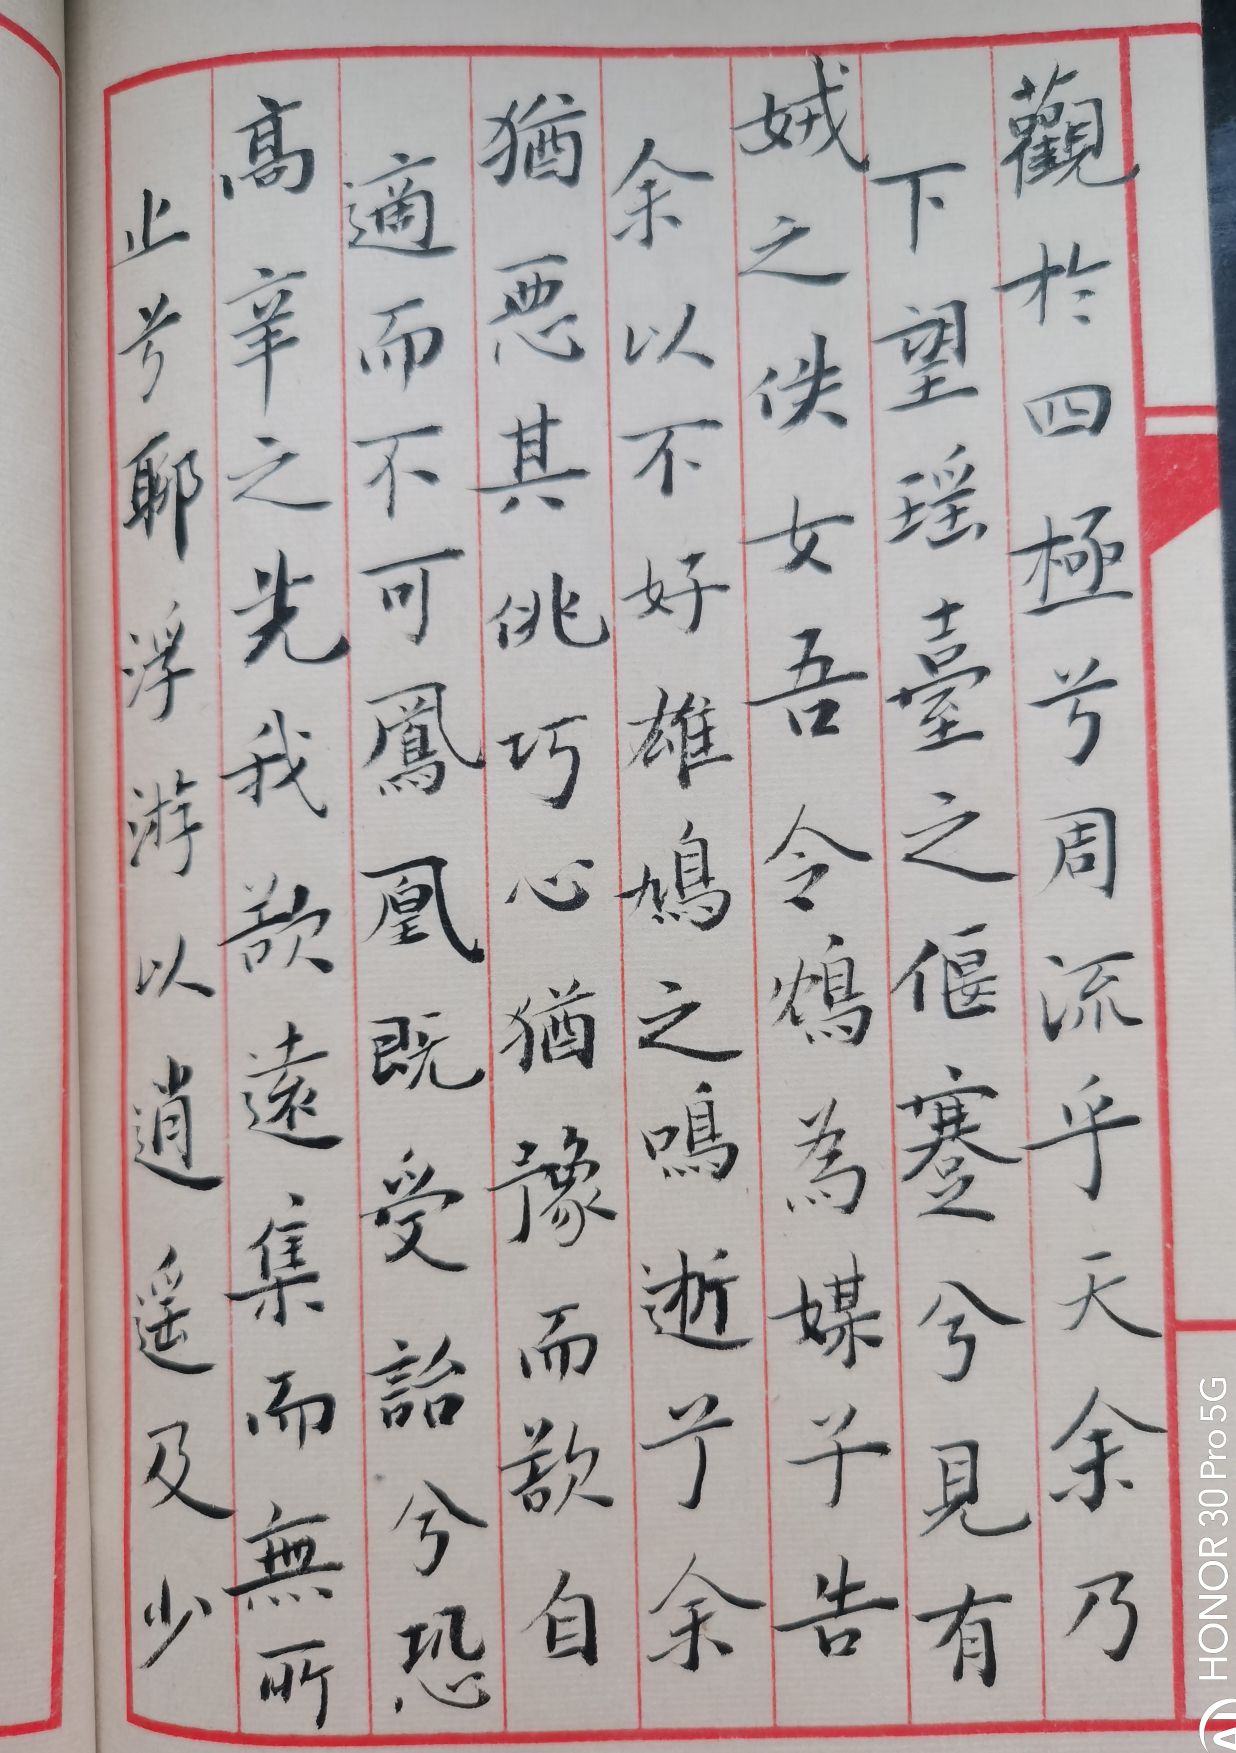 觀於四極兮周流乎天余乃
下望瑶臺之偃蹇兮見有
娀之佚女吾令鴆為媒兮告
余以不好雄鳩之鳴逝兮余
猶惡其佻巧心猶豫而欲自
適而不可鳳凰既受詒兮恐
高辛之先我欲遠集而無所
止兮聊浮游以逍遥及少
HONOR 30 Pro 5G